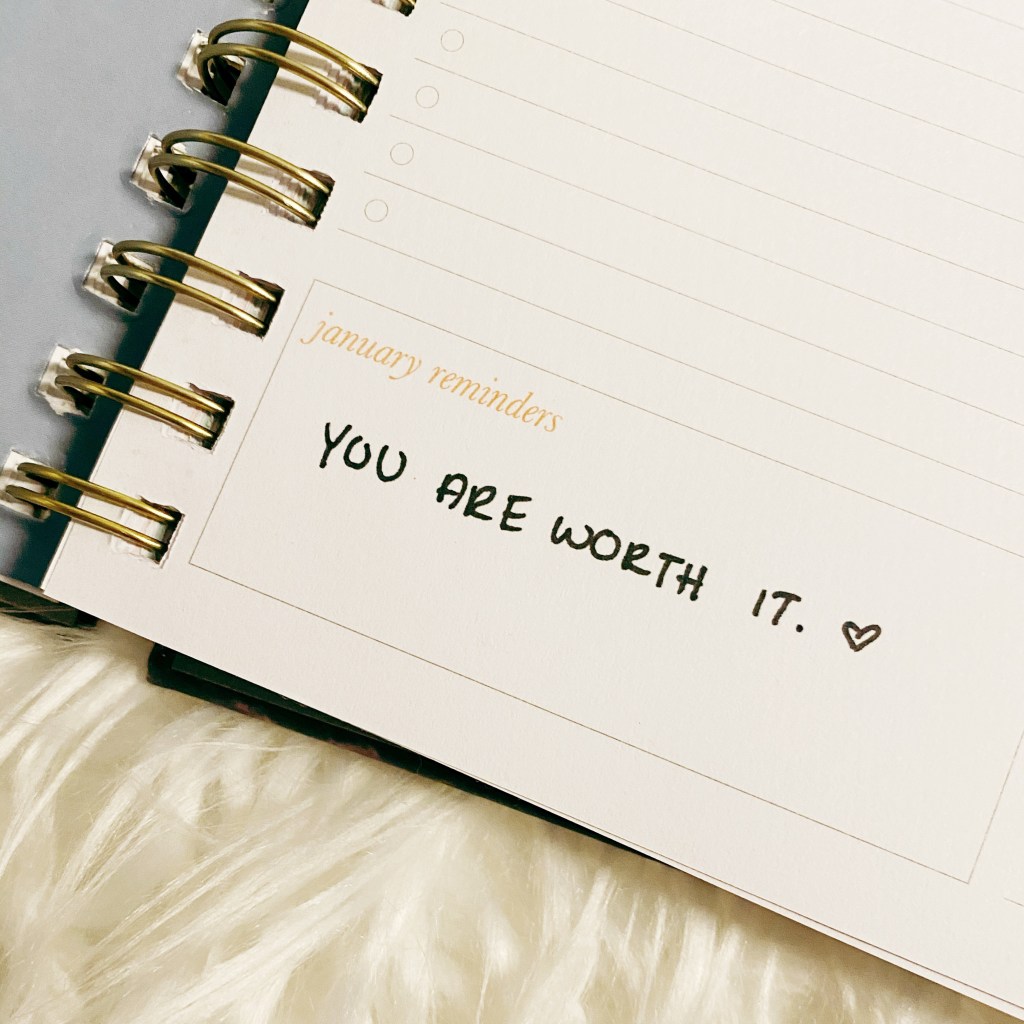 january reminders
YOU ARE WORTH IT. ♡